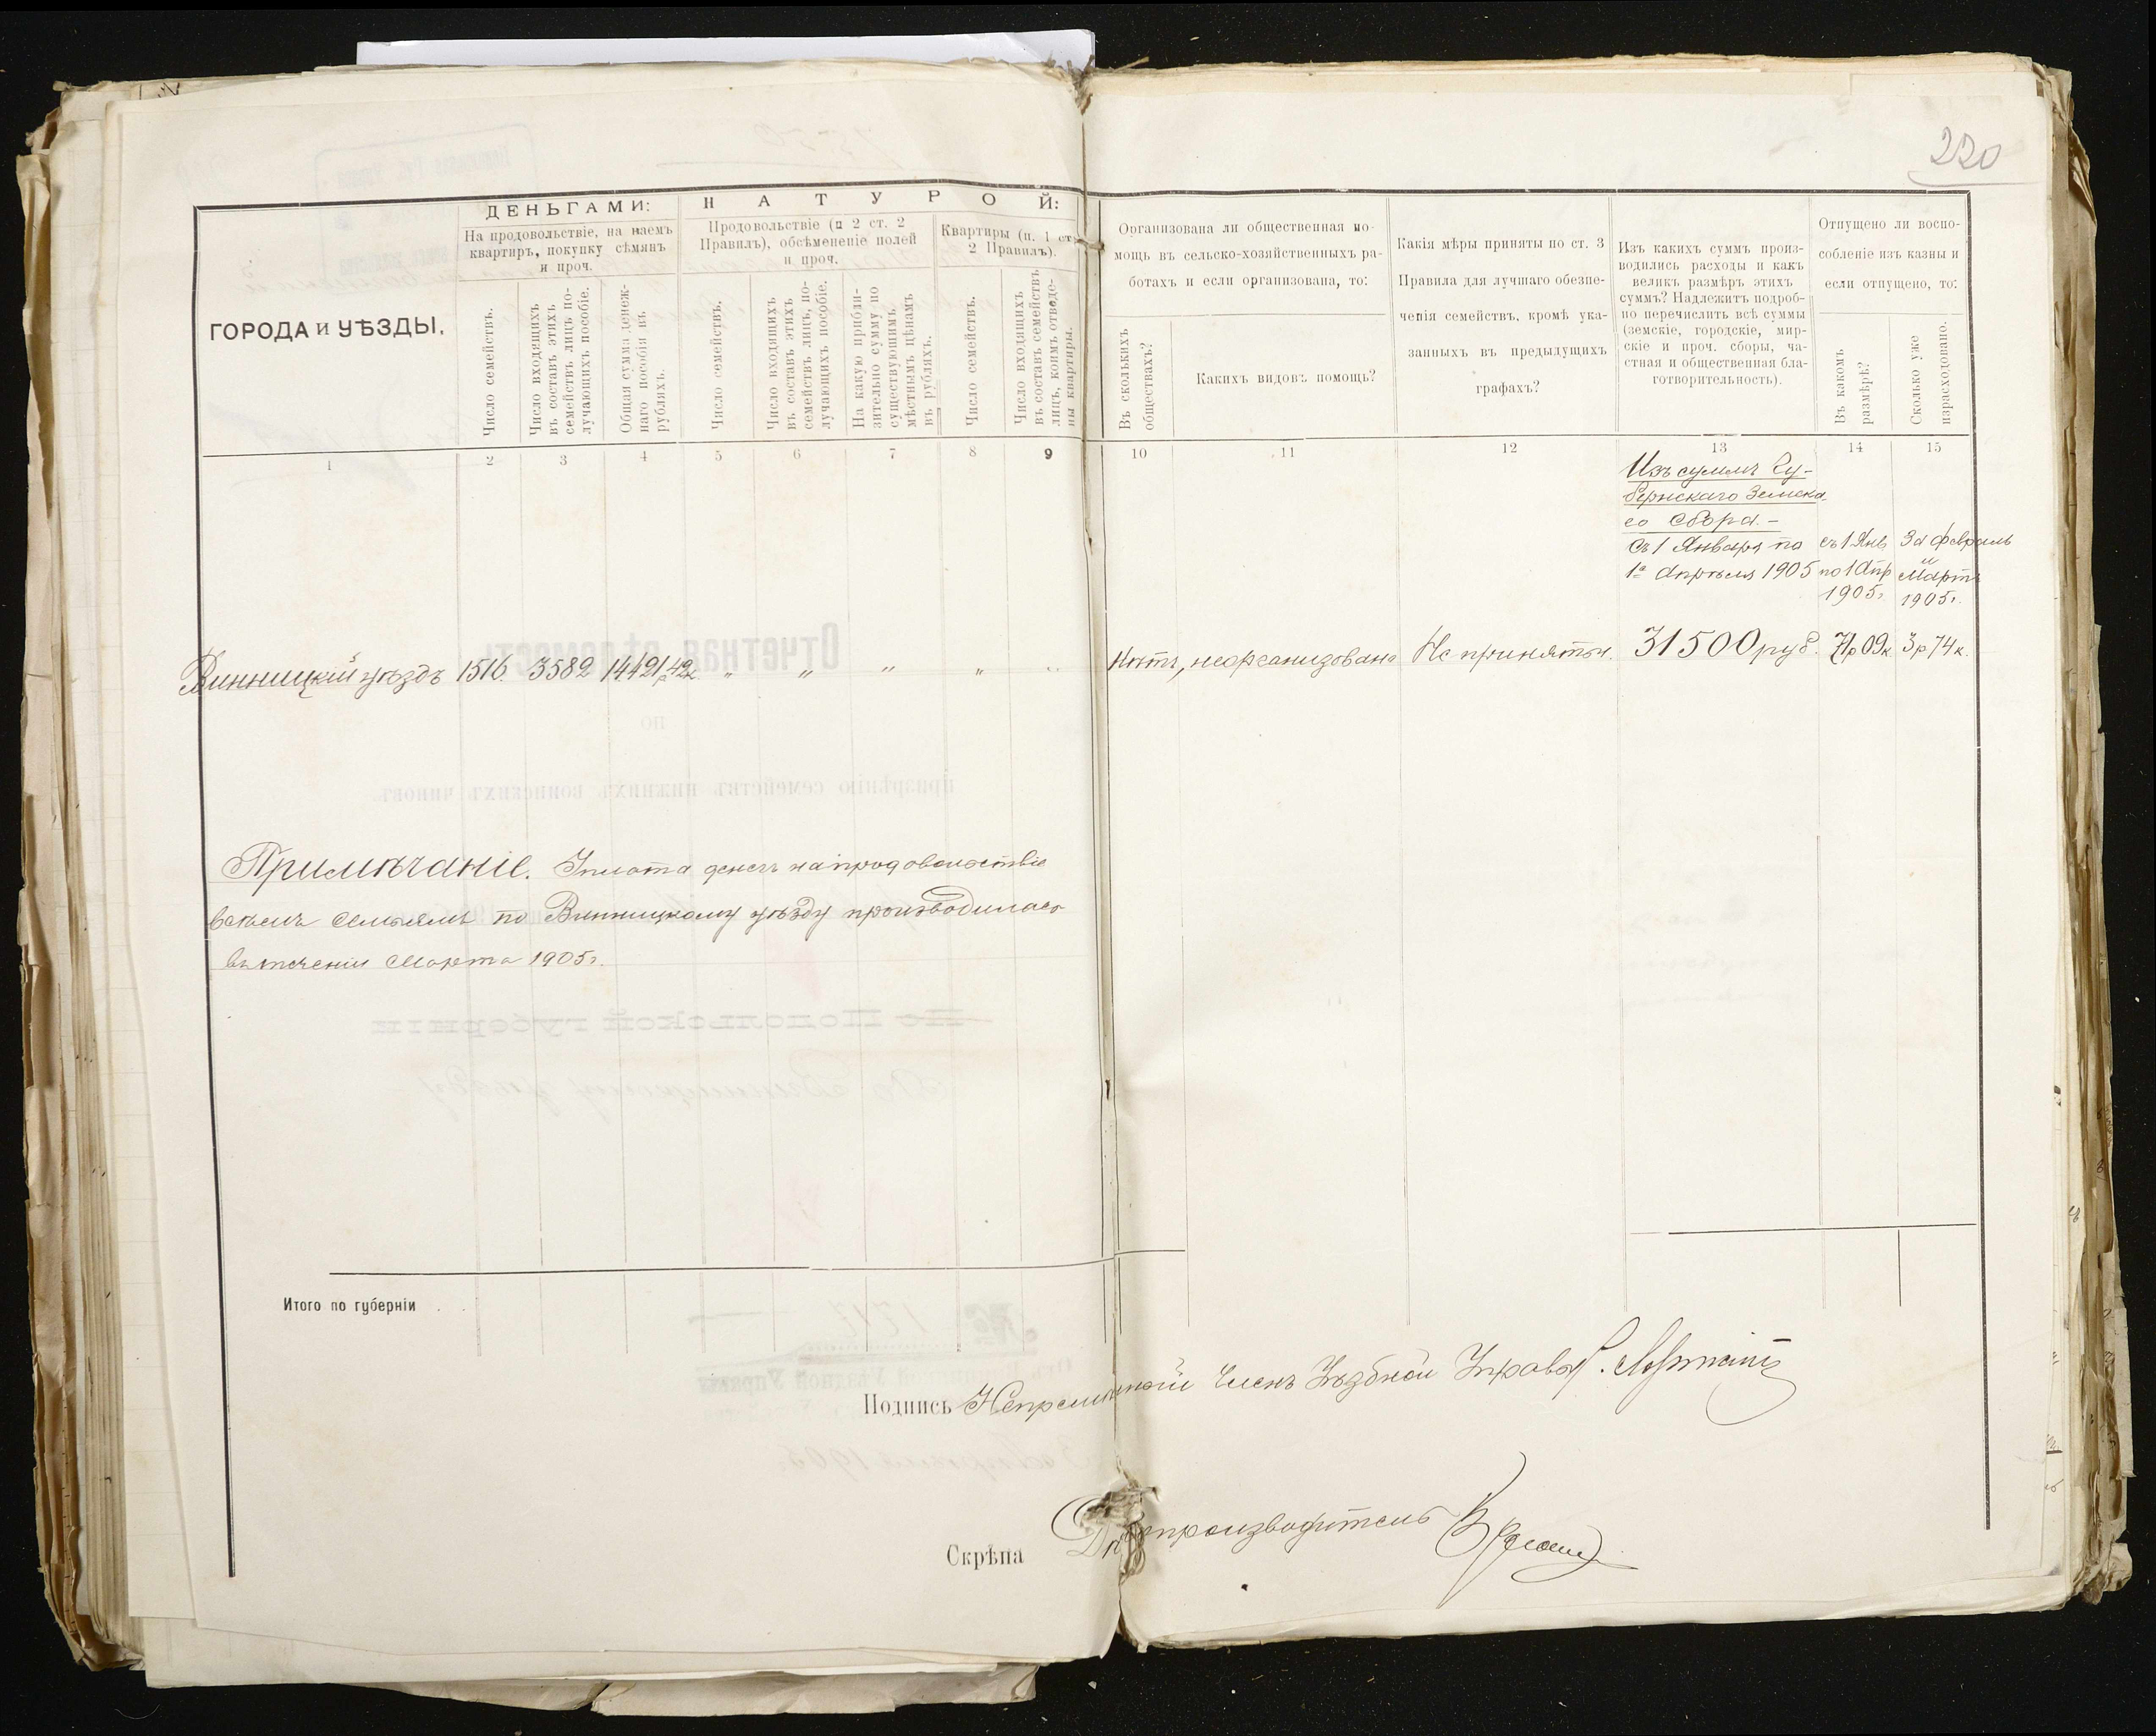 220
ДЕНЬГАМИ:
НАТУРОЙ:
ГОРОДА и УѢЗДЫ.
На продовольствіе, на наемъ
квартиръ, покупку сѣмянъ
и проч.
Продовольствіе (п 2 ст. 2
Правилъ), обсѣмененіе полей
и проч.
Квартиры (п. 1 ст.
2 Правилъ).
Число семействъ.
Число входящихъ
въ составъ этихъ
семействъ лицъ, по-
лучающихъ пособіе.
Общая сумма денеж-
наго пособія въ
рубляхъ.
Число семействъ.
Число входящихъ
въ составъ этихъ
семействъ лицъ, по-
лучающихъ пособіе.
На какую прибли-
зительно сумму по
существующимъ
мѣстнымъ цѣнамъ
въ рубляхъ.
Число семействъ.
Число входящихъ
въ составъ семействъ
лицъ, коимъ отведе-
ны квартиры.
Организована ли общественная по-
мощь въ сельско-хозяйственныхъ ра-
ботахъ и если организована, то:
Въ сколькихъ
обществахъ?
Какихъ видовъ помощь?
Какія мѣры приняты по ст. 3
Правила для лучшаго обезпе-
ченія семействъ, кромѣ ука-
занныхъ въ предыдущихъ
графахъ?
Изъ какихъ суммъ произ-
водились расходы и какъ
великъ размѣръ этихъ
суммъ? Надлежитъ подроб-
но перечислить всѣ суммы
(земскіе, городскіе, мир-
скіе и проч. сборы, ча-
стная и общественная бла-
готворительность).
Отпущено ли воспо-
собленіе изъ казны и
если отпущено, то:
Въ какомъ
размѣрѣ?
Сколько уже
израсходовано.
1 2 3 4 5 6 7 8 9 10 11 12 13 14 15
Изъ суммъ Гу-
бернскаго Земска-
го Сбора.-
Съ 1 Января по
1е Апрѣля 1905
съ 1 Янв
по 1 Апр
1905г.
За февраль
и
Мартъ
1905г.
Винницкій уѣздъ 1516. 3582 14421р 42к. " " " " " Нѣтъ, неорганизована Не приняты. 31500 руб. 71р 09к. 3р 74к.
Примѣчаніе. Уплата денегъ на продовольствіе
всѣмъ семьямъ по Винницкому уѣзду производилась
въ теченіи Марта 1905г.
Итого по губерніи . .
Подпись Непремѣнный Членъ Уѣздной Управы
Скрѣпа Дѣлопроизводитель